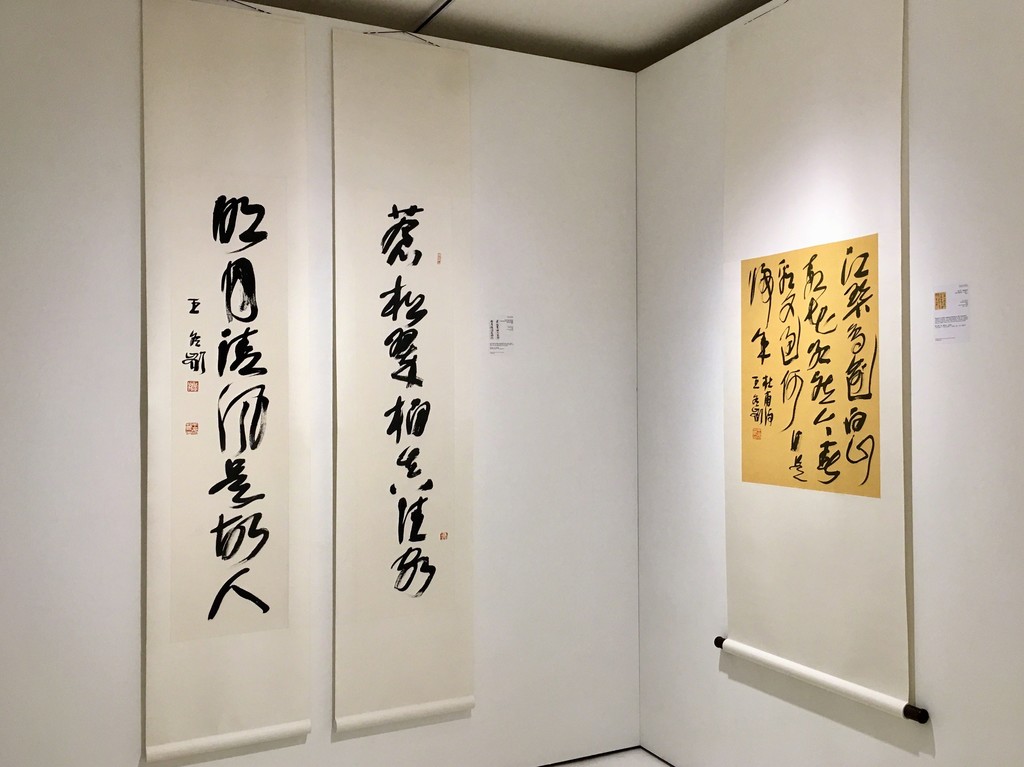 蒼松翠柏真佳客
明月清風是故人
王冬齡
江碧鳥逾白山
青花欲然今春
看又過何日是
歸年
杜甫詩
王冬齡